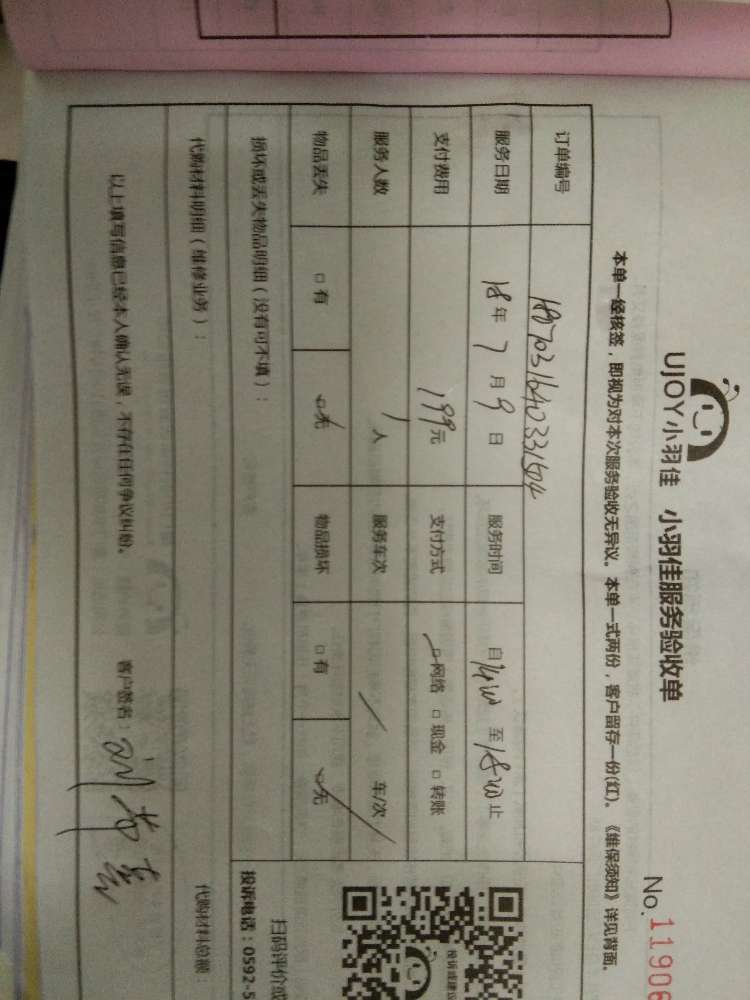 UJOY小羽佳 小羽佳服务验收单
No.11906
本单一经核签，即视为对本次服务验收无异议。本单一式两份，客户留存一份(红)。《维保须知》详见背面。
订单编号
服务日期 18年7月9日 服务时间 自1400至1800止
支付费用 199元 支付方式 □网络 □现金 □转账
服务人数 1人 服务车次 / 车/次
物品丢失 □有 □无 物品损坏 □有 □无
损坏或丢失物品明细（没有可不填）：
扫码评价或
投诉电话：0592-5
投诉或建议
代购材料明细（维修业务）：
代购材料总额：
以上填写信息已经本人确认无误，不存在任何争议纠纷。 客户签名：